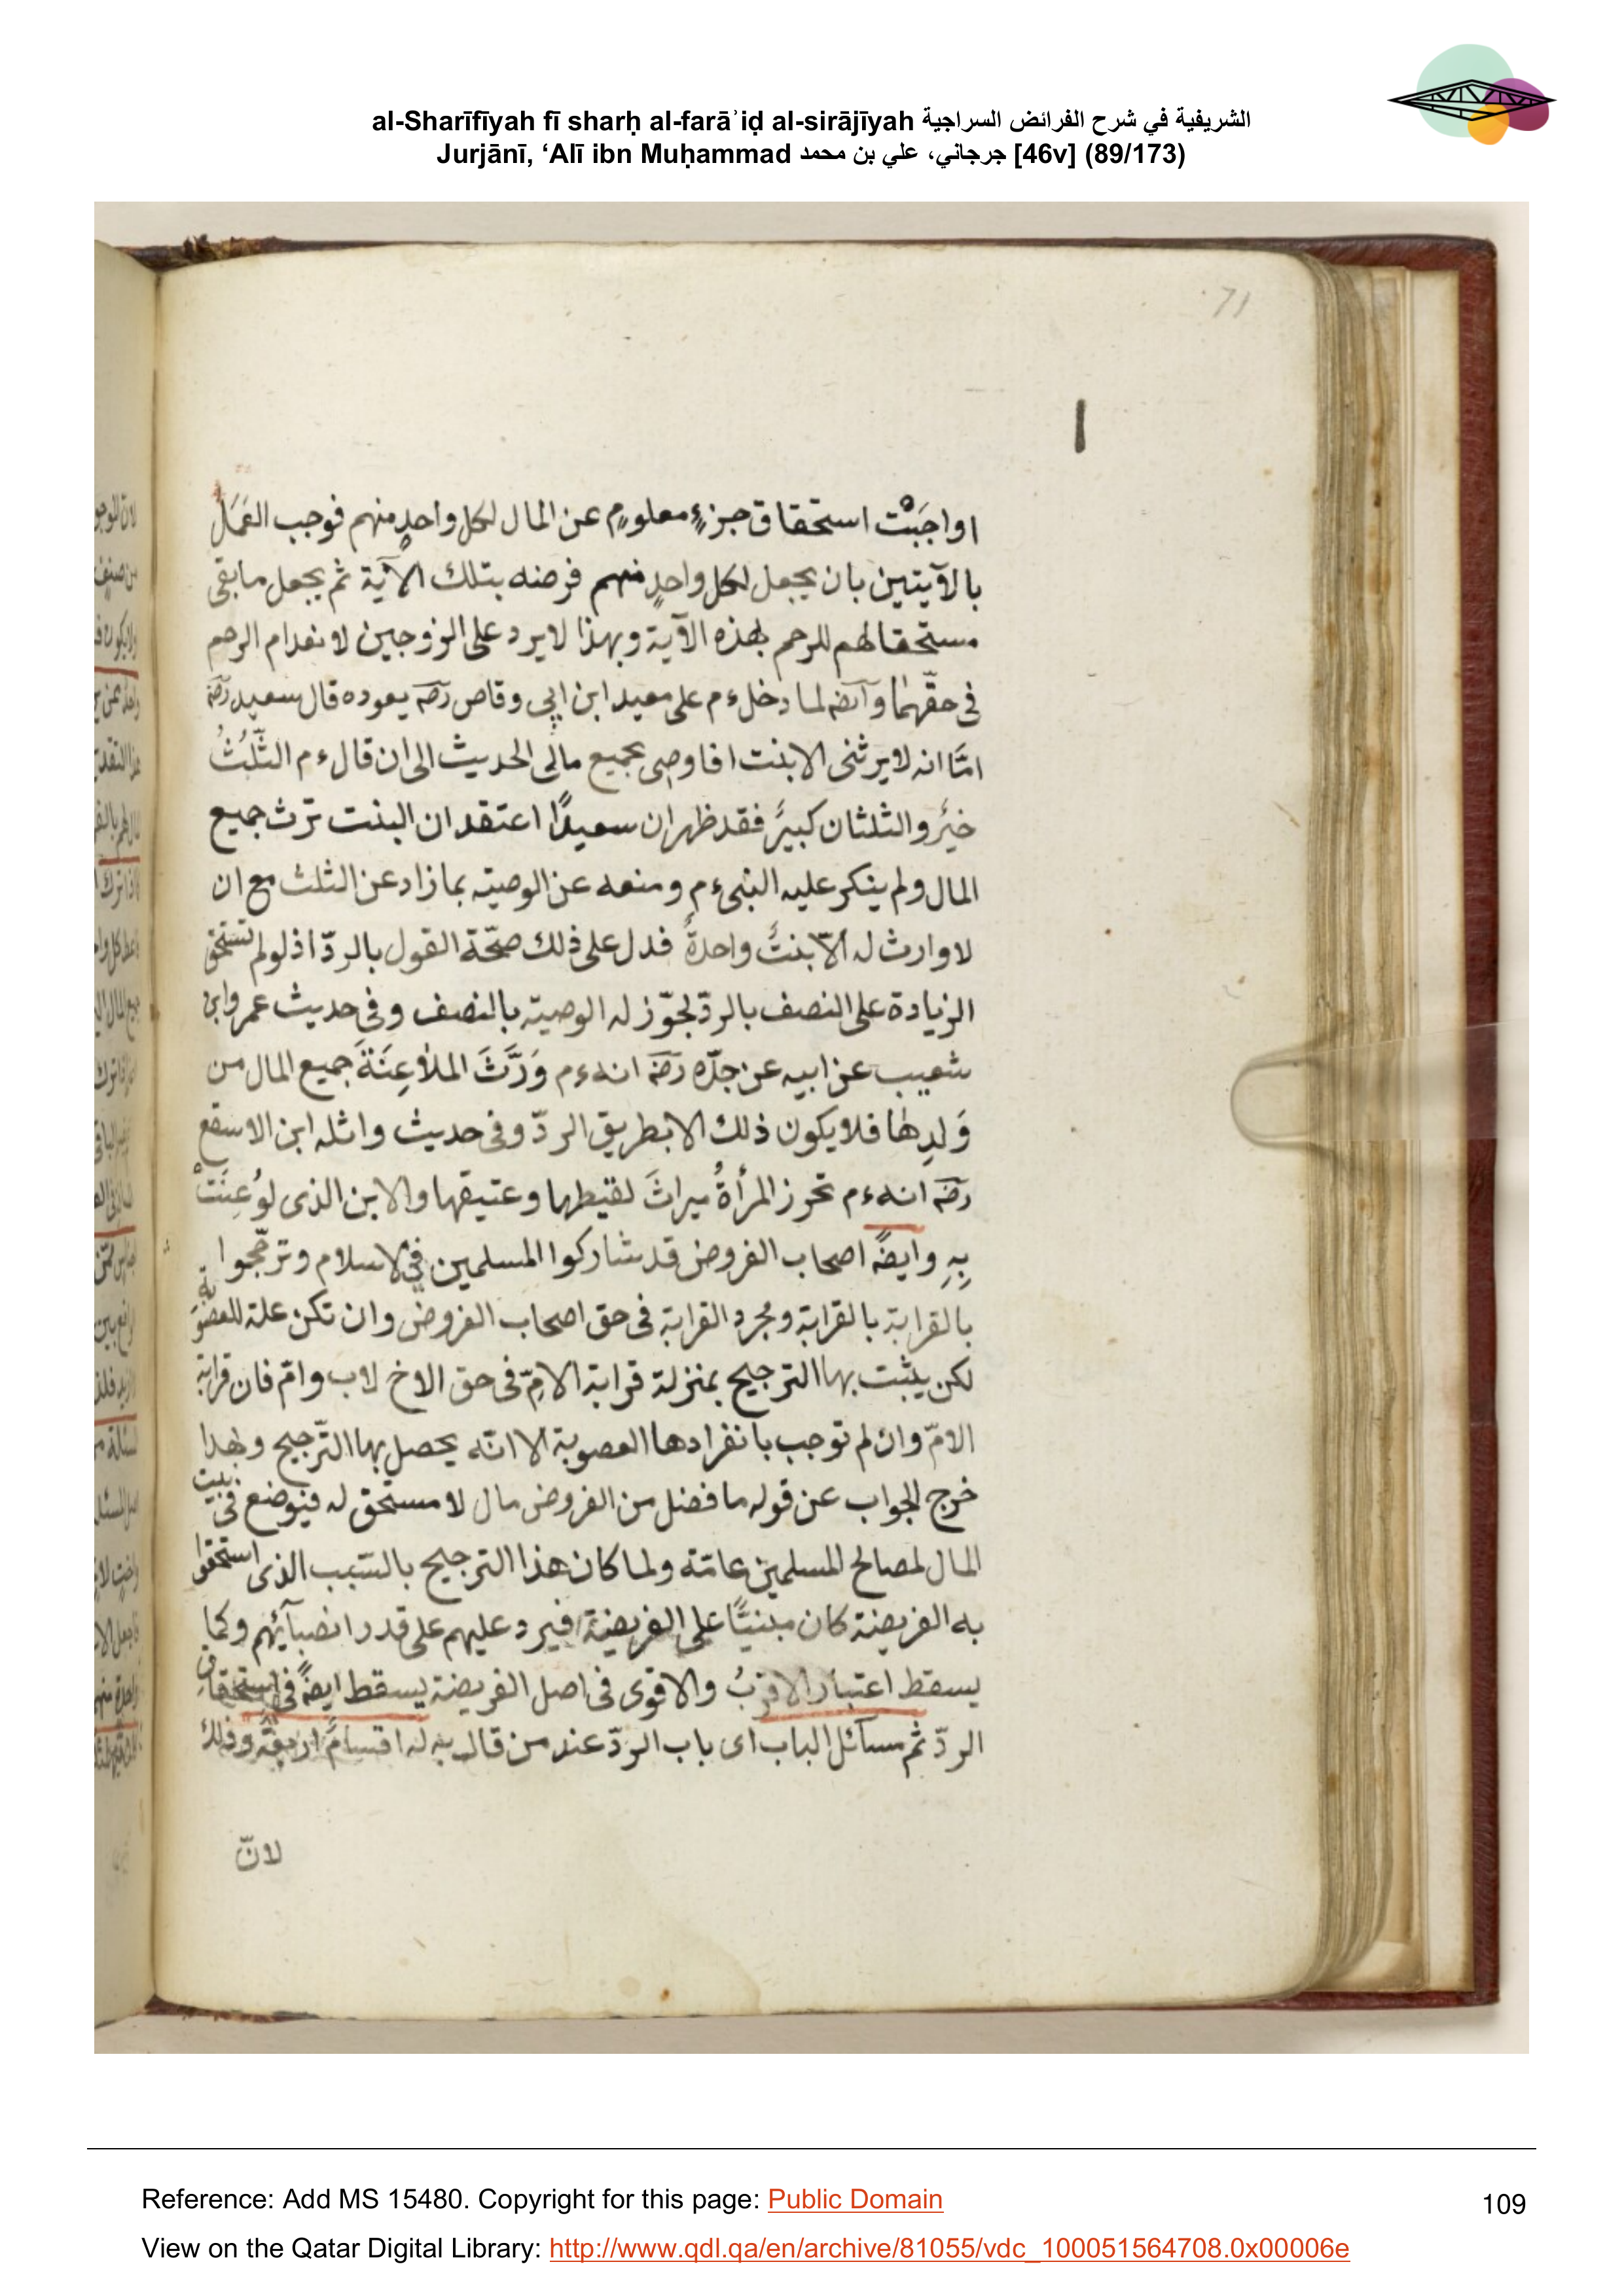 al-Sharīfīyah fī sharḥ al-farāʾiḍ al-sirājīyah الشريفية في شرح الفرائض السراجية
Jurjānī, ʻAlī ibn Muḥammad جرجاني، علي بن محمد [46v] (89/173)
71
اواجَبَتْ استحقاق جزءٍ معلومٍ عن المال لكل واحدٍ منهم فوجب العَمَلُ
بالآيتين بان يجعل لكل واحدٍ منهم فرضه بتلك الآية ثم يجعل ما بقى
مستحقا لهم للرحم بهذه الآية وبهذا لا يرد على الزوجين لانعدام الرحم
فى حقّهما وآيضه لما دخل ءم على معيد ابن ابى وقاص رضه يعوده قال سعيد رضه
امّا انه لا يرثنى الا بنت افاوصى بجميع مالى الحديث الى ان قال ءم الثّلُثُ
خيرٌ والثلثان كبيرٌ فقد ظهر ان سعيدًا اعتقد ان البنت ترث جميع
المال ولم ينكر عليه النبى ءم ومنعه عن الوصيّه بما زاد عن الثلث مع ان
لا وارث له الّا بنتٌ واحدةٌ فدل على ذلك صحّة القول بالردّ اذ لو لم تستحق
الزيادة على النصف بالردّ لجوّز له الوصيّة بالنصف وفى حديث عمر وابن
شعيب عن ابيه عن جدّه رضه انه ءم وَرَّثَ الملاعِنَةَ جميع المال من
وَلدِها فلا يكون ذلك الا بطريق الردّ وفى حديث واثله ابن الاسقع
رضه انه ءم تحرز المرأةُ ميراثَ لقيطها وعتيقها والابن الذى لوُعِنَتْ
بِهِ وايضًه اصحاب الفروض قد شاركوا المسلمين فى الاسلام وترجّحوا
بالقرابة بالقرابة ومجرد القرابة فى حق اصحاب الفروض وان تكن علة للعصوبة
لكن يثبت بها الترجيح بمنزلة قرابة الامّ فى حق الاخ لاب وامّ فان قرابة
الامّ وان لم توجب بانفرادها العصوبة الا انّه يحصل بها التّرجيح وبهذا
خرج الجواب عن قوله ما فضل من الفروض مال لا مستحق له فيوضع فى بيت
المال لمصالح المسلمين عامّة ولما كان هذا الترجيح بالسّبب الذى استحقوا
به الفريضة كان مبنيًّا على الفريضة فيرد عليهم على قدر انصبآئهم وكما
يسقط اعتبار الاقربُ والاقوى فى اصل الفريضة يسقط ايضًه فى استحقاق
الردّ ثم مسآئل الباب اى باب الردّ عند من قال به له اقسامٌ اربعةٌ وذلك
لانّ
Reference: Add MS 15480. Copyright for this page: Public Domain
109
View on the Qatar Digital Library: http://www.qdl.qa/en/archive/81055/vdc_100051564708.0x00006e